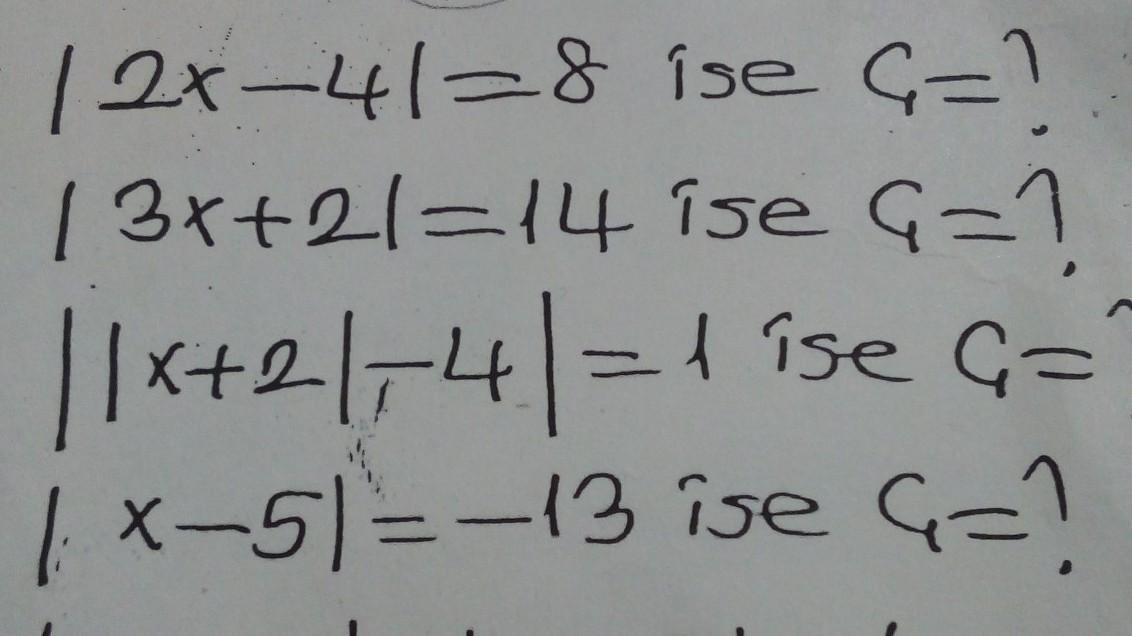 |2x-4|=8 ise Ç=?
|3x+2|=14 ise Ç=?
||x+2|-4|=1 ise Ç=?
|x-5|=-13 ise Ç=?